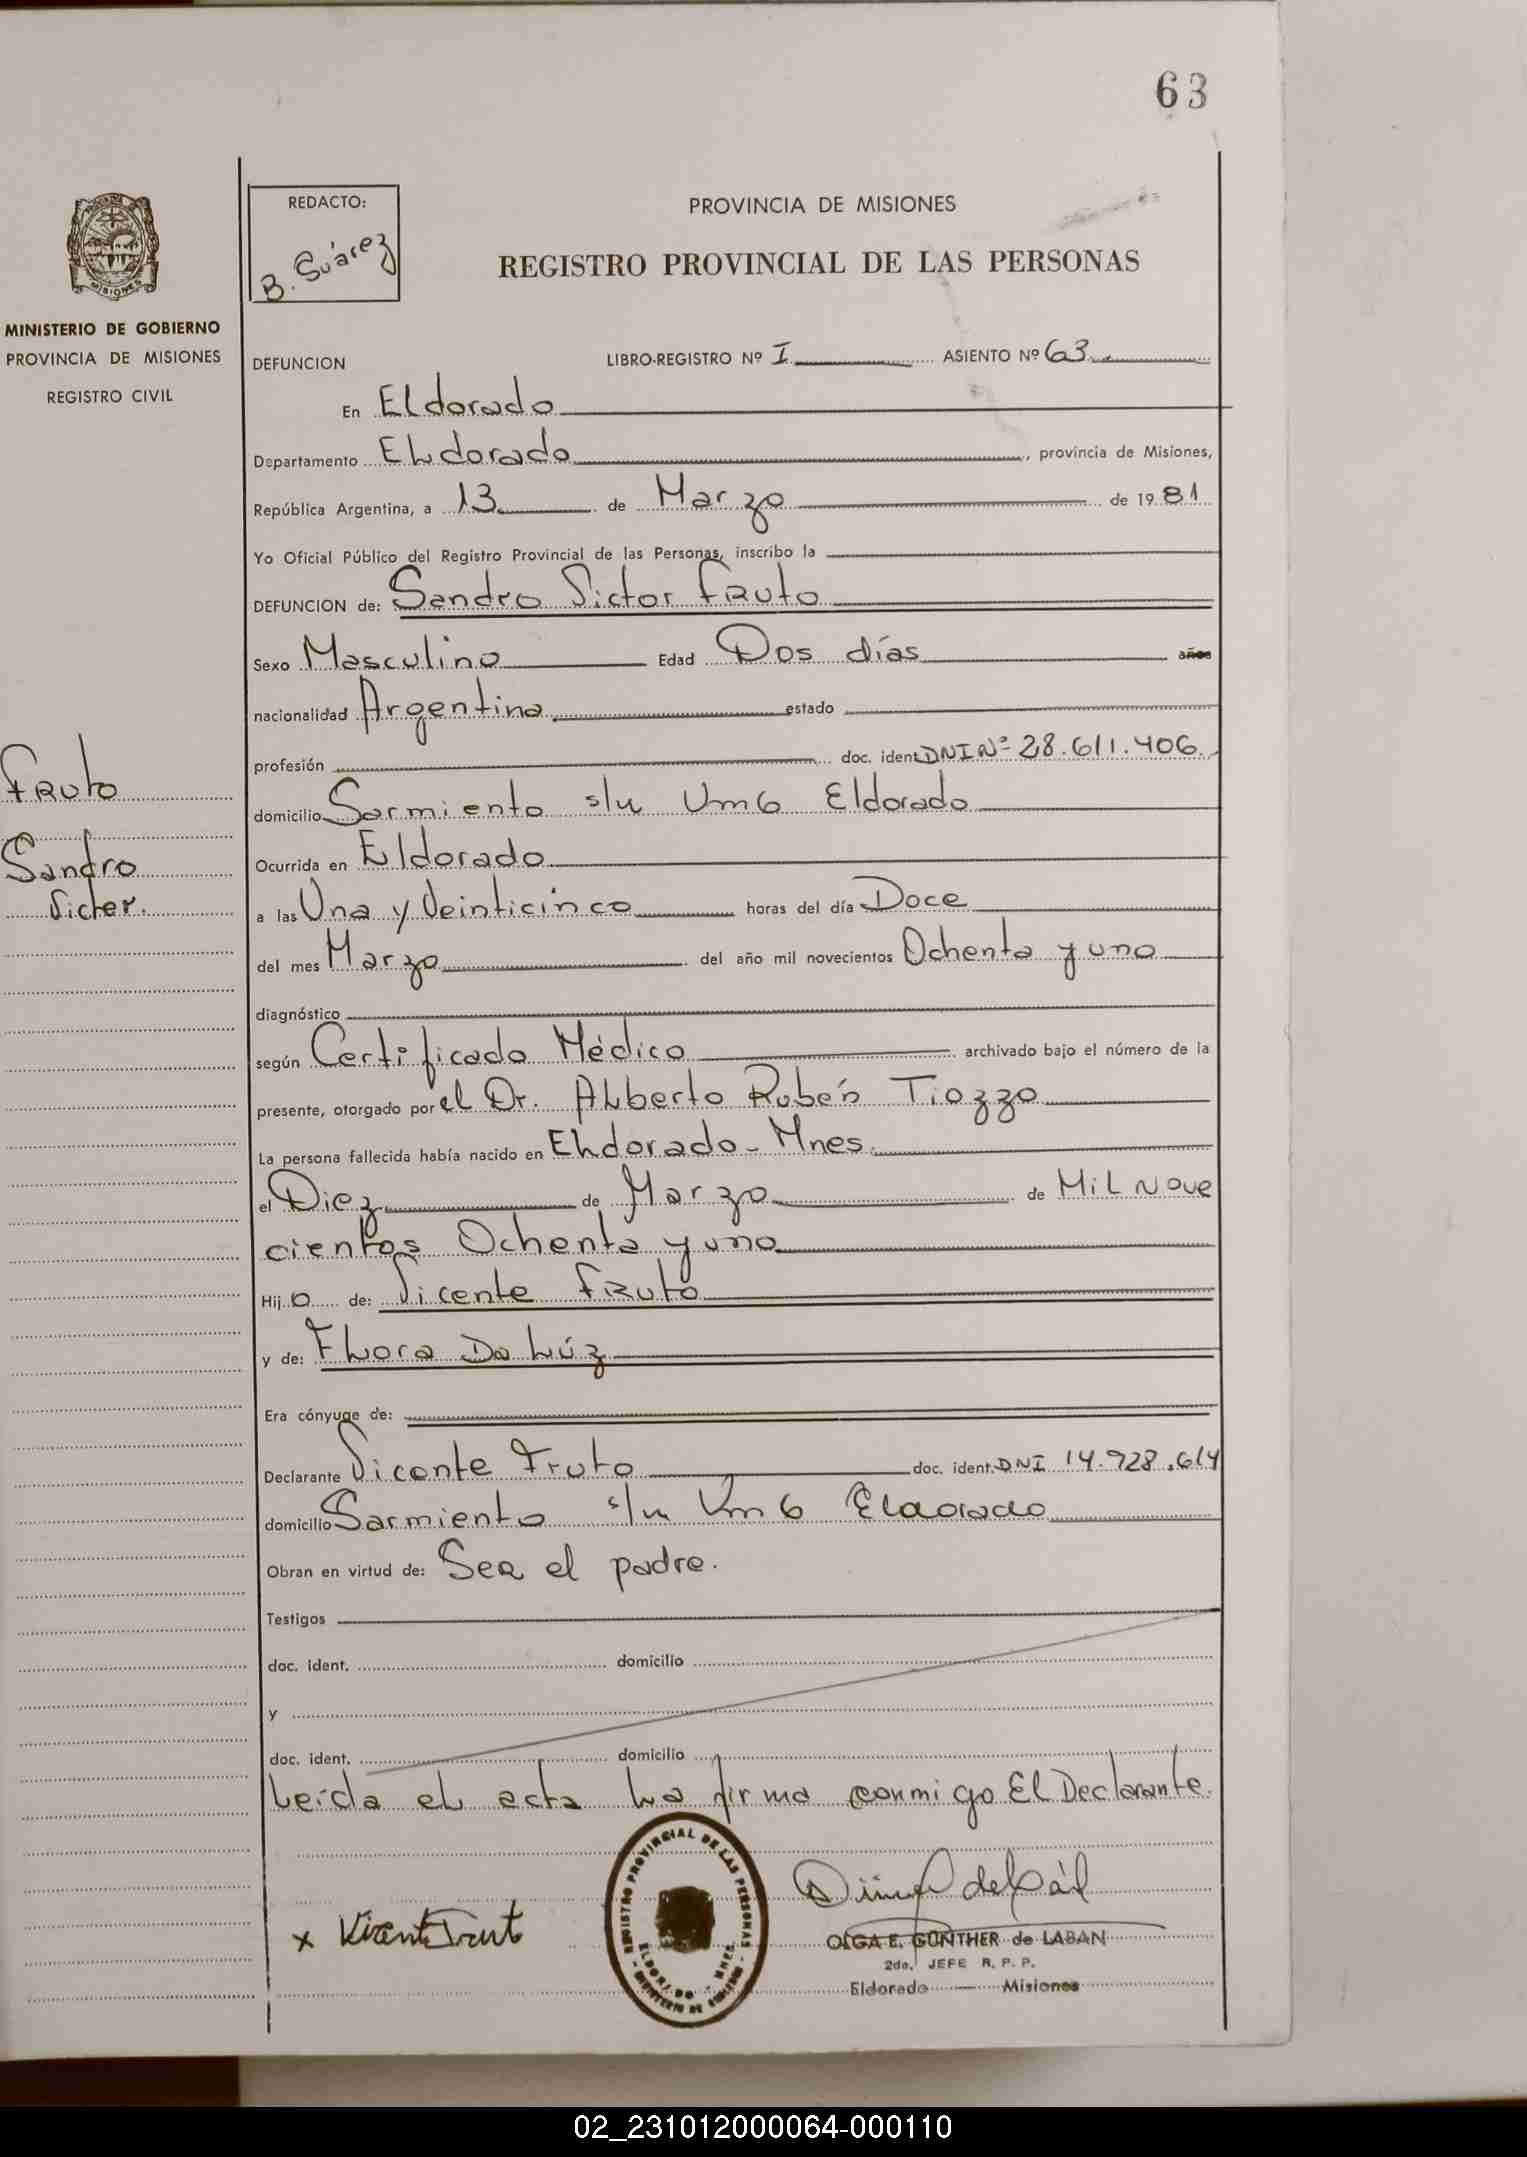 63
REDACTO:
B. Suárez
PROVINCIA DE MISIONES
REGISTRO PROVINCIAL DE LAS PERSONAS
MISIONES
MINISTERIO DE GOBIERNO
PROVINCIA DE MISIONES
REGISTRO CIVIL
DEFUNCION LIBRO-REGISTRO Nº I ASIENTO Nº 63
En Eldorado
Departamento Eldorado, provincia de Misiones,
República Argentina, a 13 de Marzo de 1981
Yo Oficial Público del Registro Provincial de las Personas, inscribo la
DEFUNCION de: Sandro Victor Fruto
Sexo Masculino Edad Dos días años
nacionalidad Argentina estado
profesión doc. ident. DNI Nº 28.611.406
domicilio Sarmiento s/n Km 6 Eldorado
Fruto
Sandro
Victor.
Ocurrida en Eldorado
a las Una y Veinticinco horas del día Doce
del mes Marzo del año mil novecientos Ochenta y uno
diagnóstico
según Certificado Médico archivado bajo el número de la
presente, otorgado por el Dr. Alberto Rubén Tiozzo
La persona fallecida había nacido en Eldorado - Mnes.
el Diez de Marzo de Mil Nove
cientos Ochenta y uno
Hijo de: Vicente Fruto
y de: Flora Da Lúz
Era cónyuge de:
Declarante Vicente Fruto doc. ident. DNI 14.928.614
domicilio Sarmiento s/n Km 6 Eldorado
Obran en virtud de: Ser el padre.
Testigos
doc. ident. domicilio
y
doc. ident. domicilio
Leída el acta la firma conmigo El Declarante.
REGISTRO PROVINCIAL DE LAS PERSONAS
ELDORADO - MNES.
x Vicente Frut
OLGA E. GUNTHER de LABAN
2da. JEFE R. P. P.
Eldorado — Misiones
02_231012000064-000110